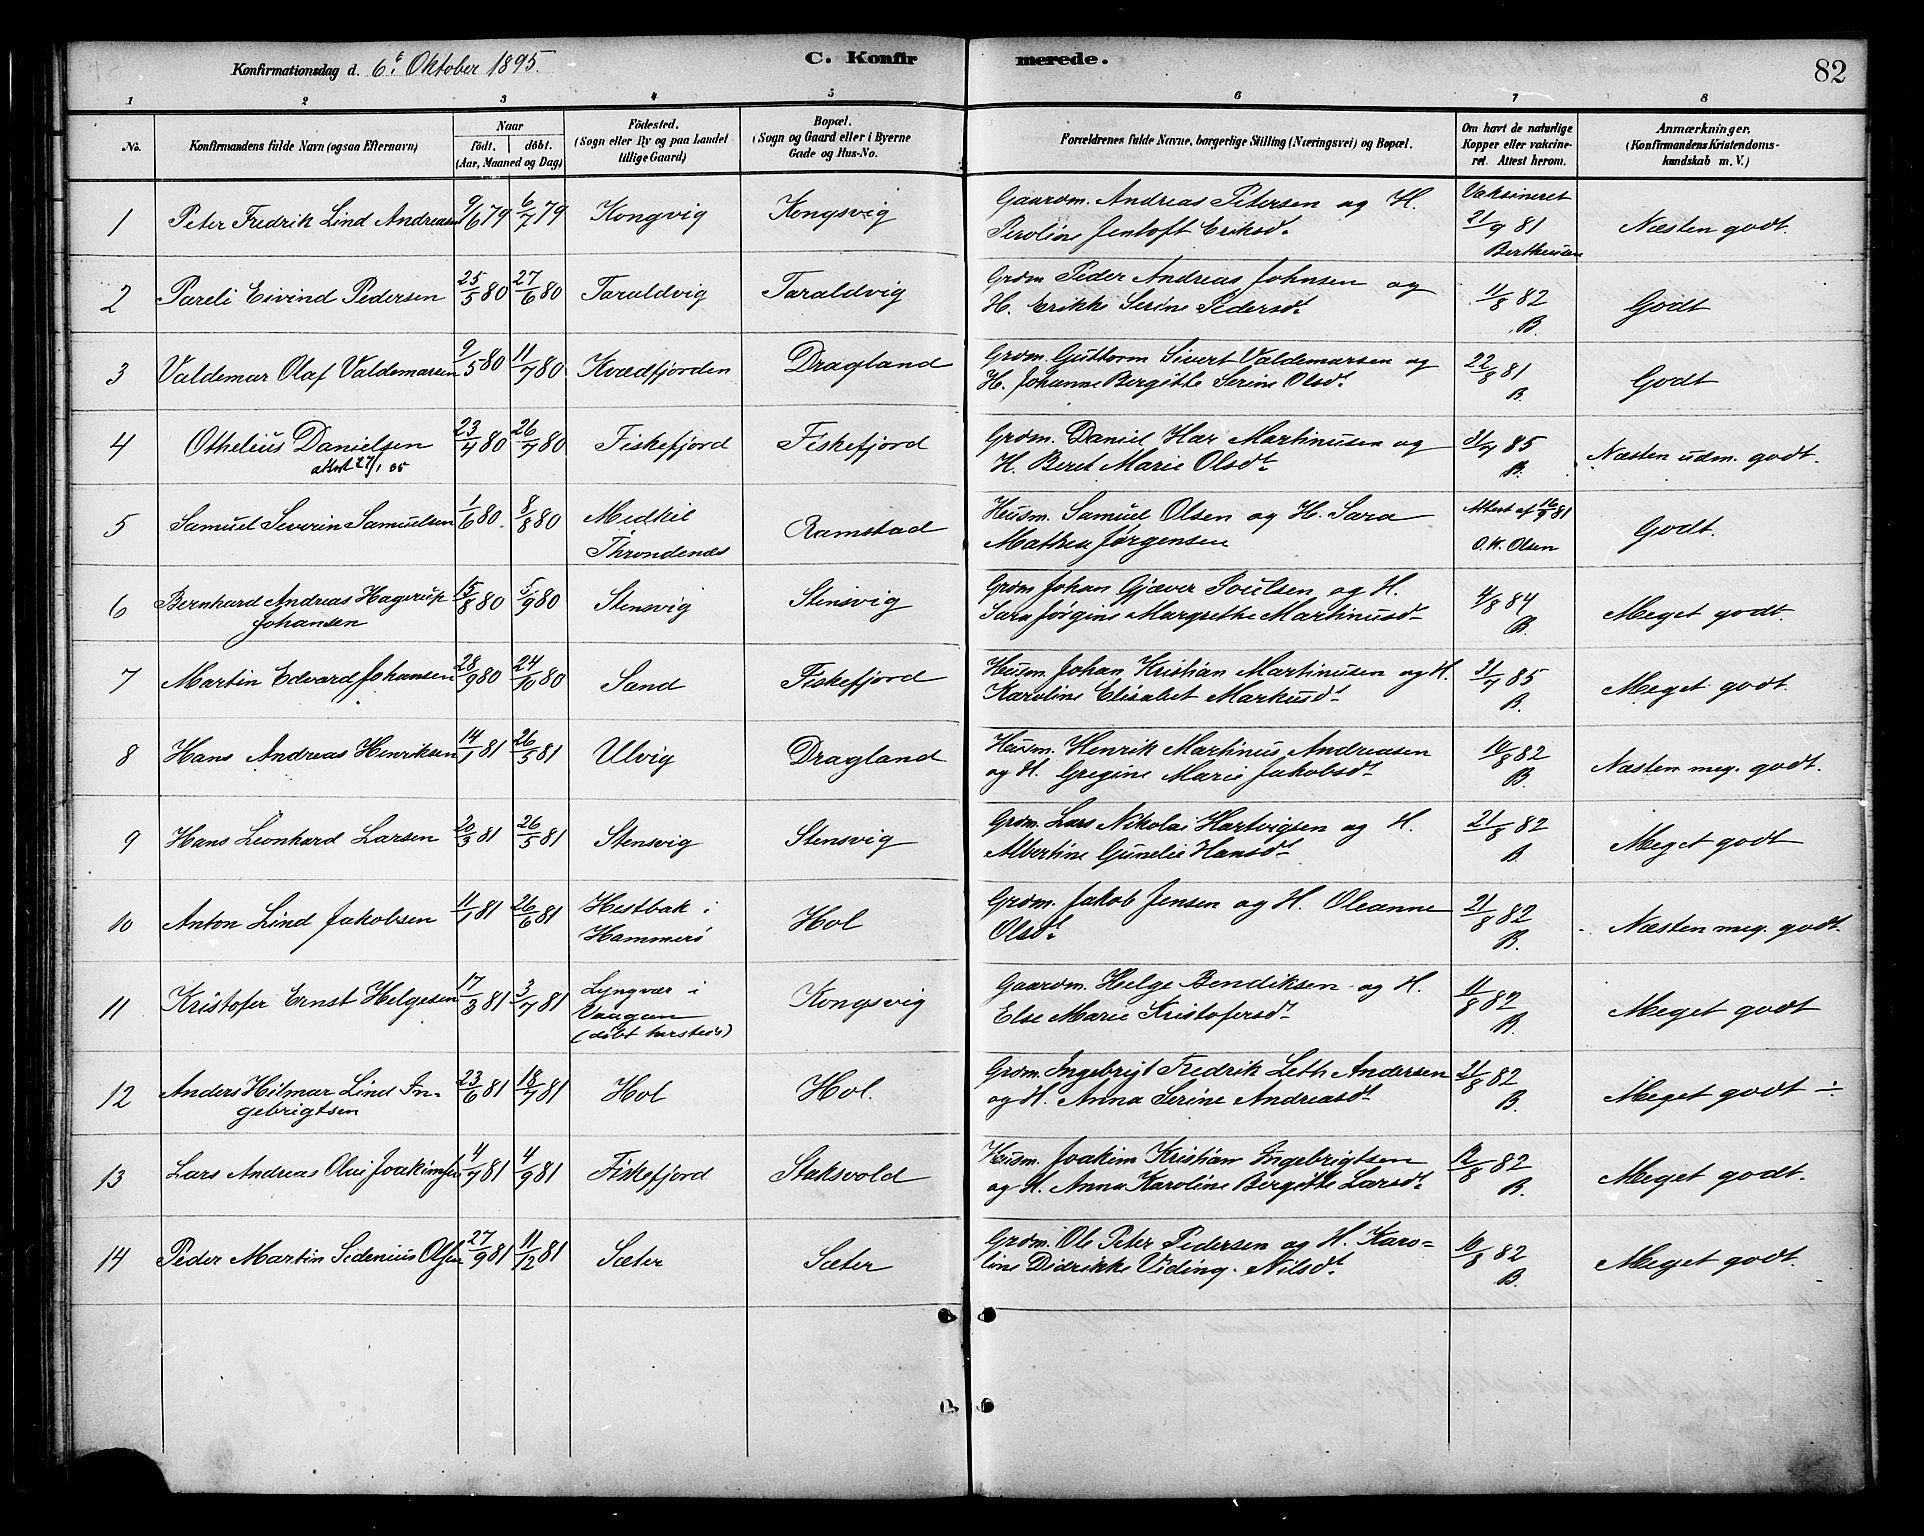 Konfirmationsdag d. 6te Oktober 1895.
C. Konfirmerede.
82
1 2 3 4 5 6 7 8
No. Konfirmandens fulde Navn (ogsaa Efternavn) Naar født. døbt. (Aar, Maaned og Dag) Födested. (Sogn eller By og paa Landet tillige Gaard) Bopæl. (Sogn og Gaard eller i Byerne Gade og Hus-No.) Forældrenes fulde Navne, borgerlige Stilling (Næringsvei) og Bopæl. Om havt de naturlige Kopper eller vakcineret. Attest herom. Anmærkninger. (Konfirmandens Kristendomskundskab m. V.)
1 Peter Fredrik Lind Andreasen 9/6 79 6/7 79 Kongvig Kongsvig Gaardm. Andreas Petersen og H. Peroline Jentoft Eriksd. Vaksineret 21/9 81 Bertheusen Næsten godt.
2 Pareli Eivind Pedersen 25/5 80 27/6 80 Taraldvig Taraldvig Grdm. Peder Andreas Johnsen og H. Erikke Serine Pedersdt. 11/8 82 B. Godt
3 Valdemar Olaf Valdemarsen 9/5 80 11/7 80 Kvædfjorden Dragland Grdm. Guttorm Sivert Valdemarsen og H. Johanne Bergitte Serine Olsdt. 22/8 81 B. Godt
4 Othelius Danielsen attest 27/1 05 23/4 80 26/7 80 Fiskefjord Fiskefjord Grdm. Daniel Har Martinusen og H. Beret Marie Olsdt. 31/7 85 B. Næsten udm. godt.
5 Samuel Severin Samuelsen 1/6 80. 8/8 80 Medkil Throndenæs Ramstad Husm. Samuel Olsen og H. Sara Mathea Jørgensen Attest af 16/9 81 O. K. Olsen Godt.
6 Bernhard Andreas Hagerup Johansen 15/8 80 5/9 80 Stensvig Stensvig Grdm Johan Gjæver Poulsen og H. Sara Jørgine Margrethe Martinusdt. 4/8 84 B. Meget godt.
7 Martin Edvard Johansen 28/9 80 24/10 80 Sand Fiskefjord Husm. Johan Kristian Martinusen og H. Karoline Elisabet Markusdt. 31/7 85 B. Meget godt.
8 Hans Andreas Henriksen 14/1 81 26/5 81 Ulvig Dragland Husm. Henrik Martinus Andreasen og H. Gregine Marie Jakobsdt. 14/8 82 B. Næsten meg. godt.
9 Hans Leonhard Larsen 20/3 81 26/5 81 Stensvig Stensvig Grdm. Lars Nikolai Hartvigsen og H. Albertine Gunelie Hansdt. 21/8 82 B. Meget godt
10 Anton Lind Jakobsen 11/1 81 26/6 81 Hestbak i Hammerø Hol Grdm. Jakob Jensen og H. Oleanne Olsdt. 21/8 82 B. Næsten meg. godt.
11 Kristofer Ernst Helgesen 17/3 81 3/7 81 Lyngvær i Vaagan (døbt hersteds) Kongsvig Gaardm. Helge Bendiksen og H. Else Marie Kristofersdt. 11/8 82 B. Meget godt
12 Anders Hilmar Lind Ingebrigtsen 23/6 81 18/7 81 Hol Hol. Grdm. Ingebrigt Fredrik Leth Andersen og H. Anna Serine Andreasdt. 21/8 82 B. Meget godt ÷
13 Lars Andreas Olai Joakimsen 4/7 81 4/9 81 Fiskefjord Staksvold Husm. Joakim Kristian Ingebrigtsen og H. Anna Karoline Bergitte Larsdt. 12/8 82 B. Meget godt.
14 Peder Martin Sedenius Olsen 27/9 81 11/12 81 Sæter Sæter Grdm. Ole Peter Pedersen og H. Karoline Didrikke Viding Nilsdt. 10/8 82 B. Meget godt.